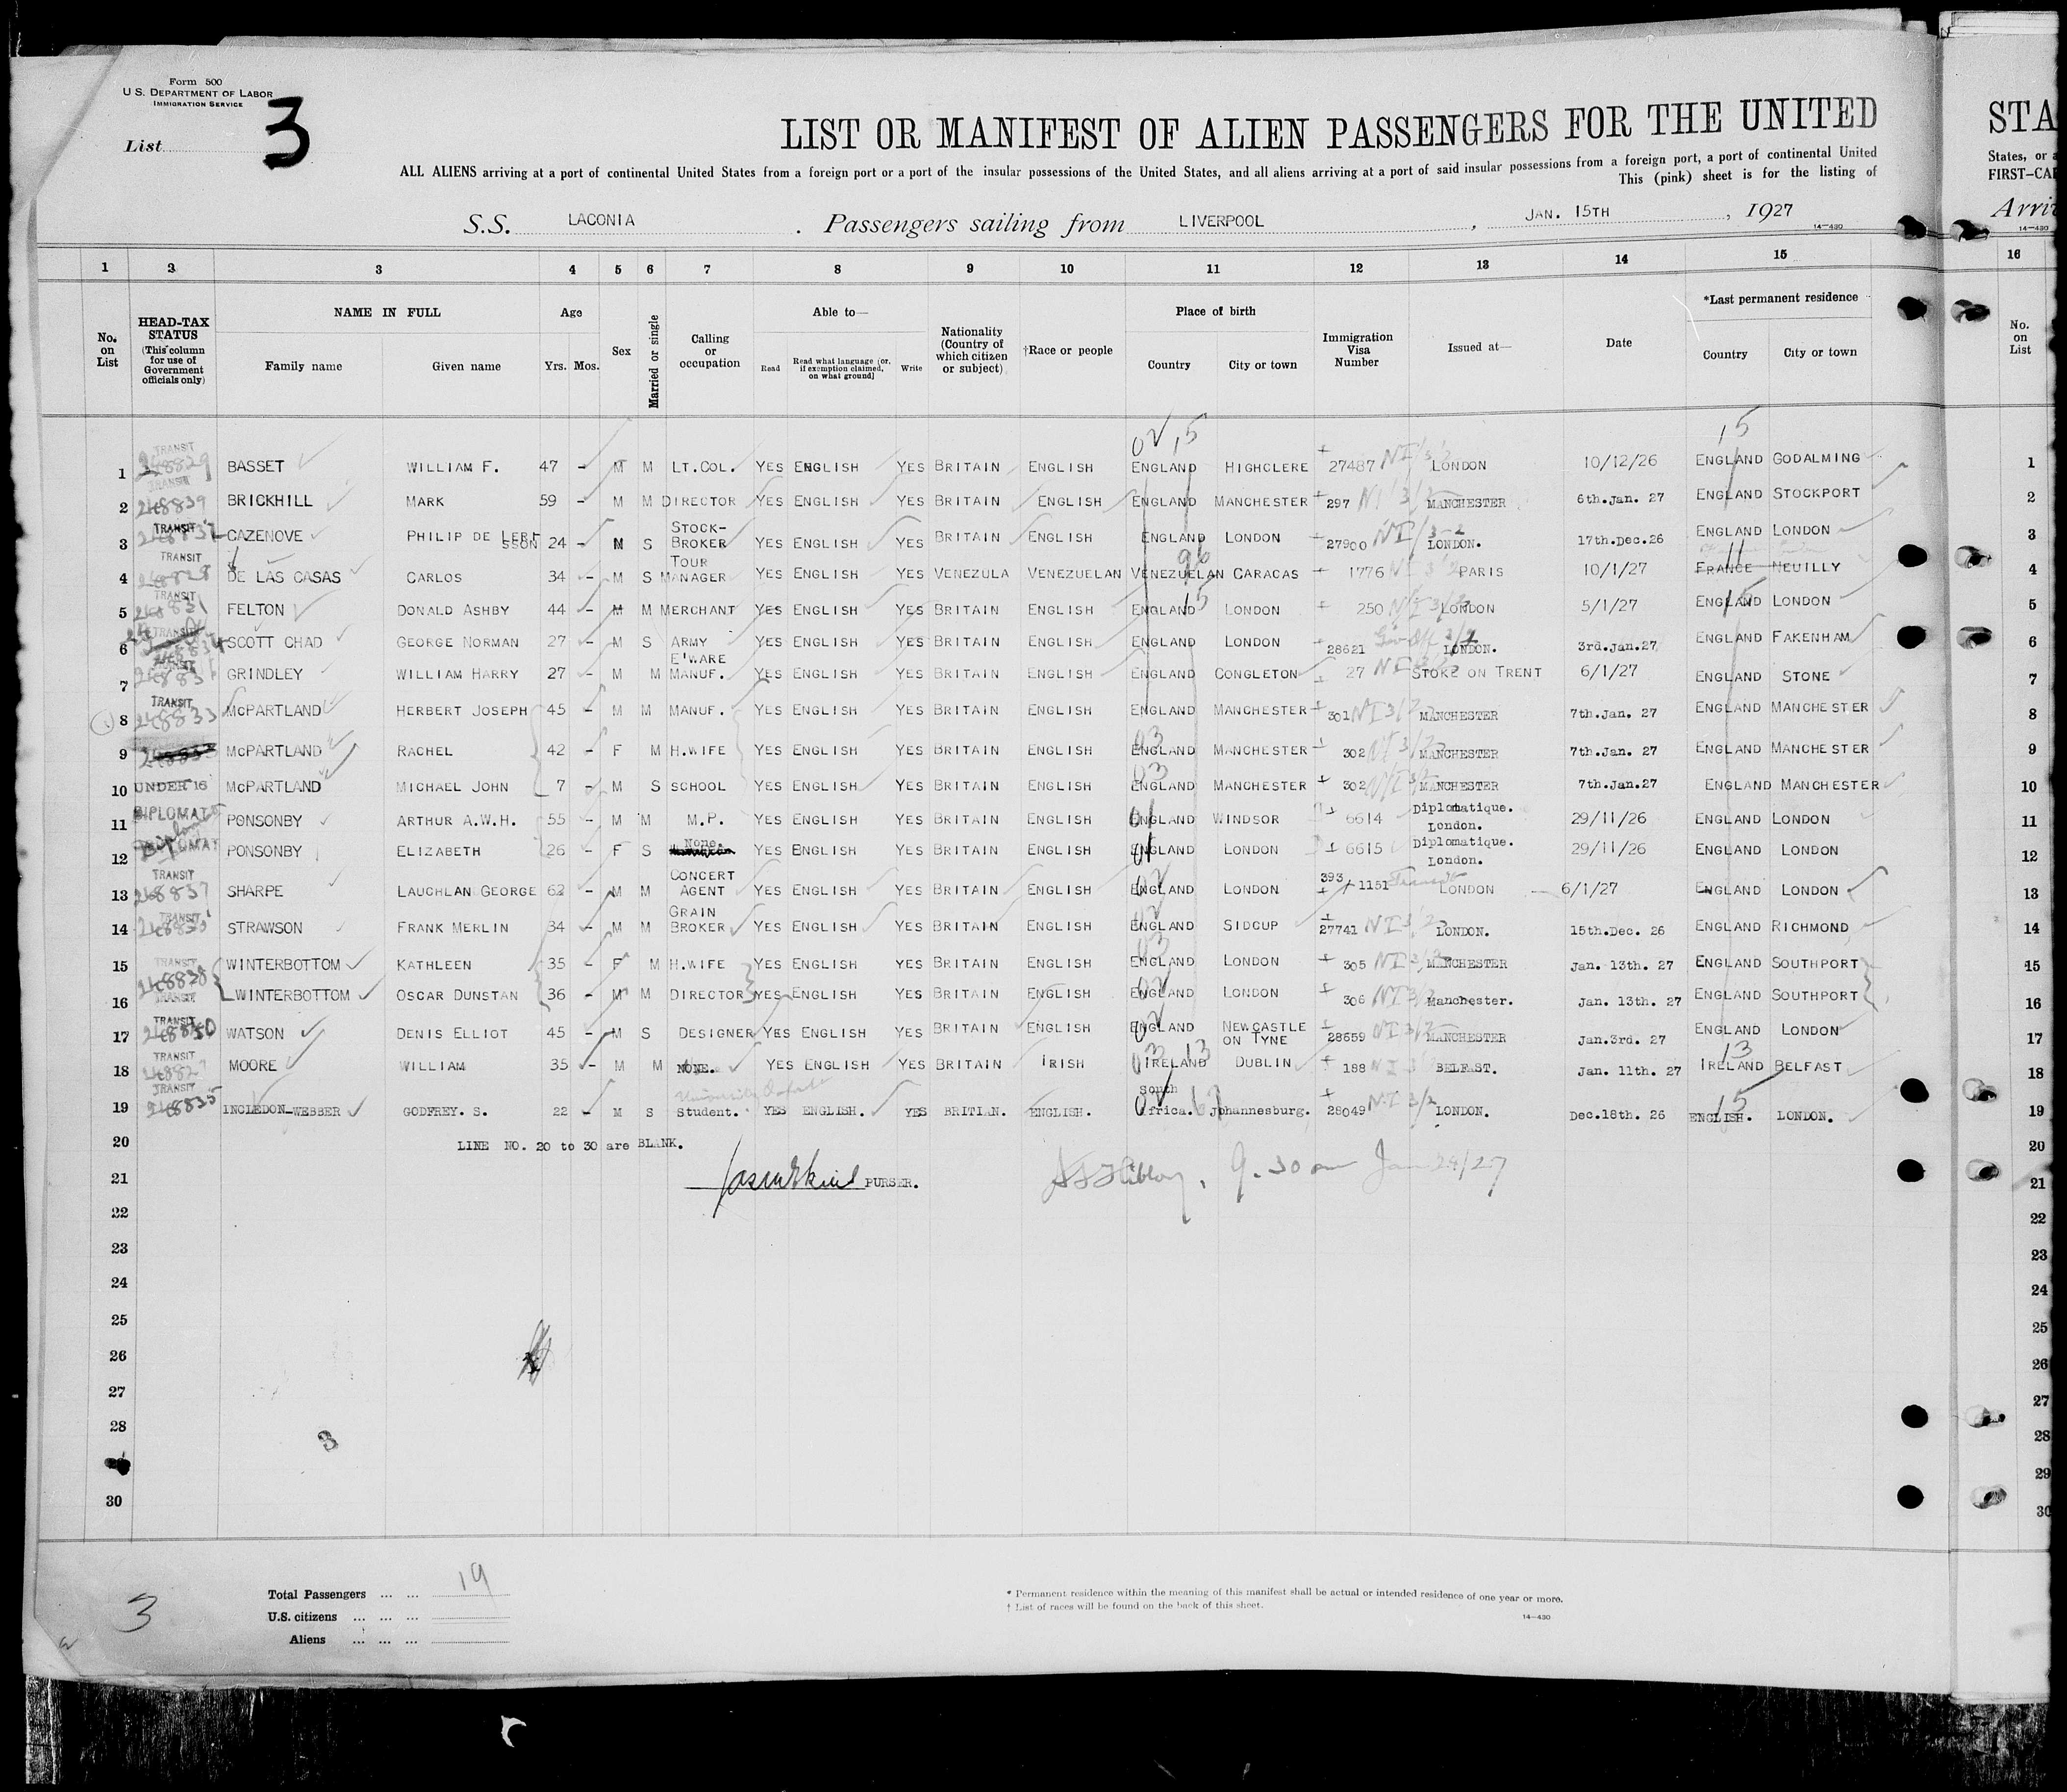 Form 500
U.S. DEPARTMENT OF LABOR
IMMIGRATION SERVICE
List 3
LIST OR MANIFEST OF ALIEN PASSENGERS FOR THE UNITED
STA
ALL ALIENS arriving at a port of continental United States from a foreign port or a port of the insular possessions of the United States, and all aliens arriving at a port of said insular possessions from a foreign port, a port of continental United
States, or a
This (pink) sheet is for the listing of
FIRST-CA
S.S. LACONIA . Passengers sailing from LIVERPOOL , JAN. 15TH , 1927
Arri
14-430
14-430
1 2 3 4 5 6 7 8 9 10 11 12 13 14 15 16
No. on List
HEAD-TAX STATUS (This column for use of Government officials only)
NAME IN FULL
Family name Given name
Age
Yrs. Mos.
Sex
Married or single
Calling or occupation
Able to—
Read Read what language [or, if exemption claimed, on what ground] Write
Nationality (Country of which citizen or subject)
†Race or people
Place of birth
Country City or town
Immigration Visa Number
Issued at—
Date
*Last permanent residence
Country City or town
No. on List
02 15 15
1 TRANSIT 248829 BASSET WILLIAM F. 47 - M M LT.COL. YES ENGLISH YES BRITAIN ENGLISH ENGLAND HIGHCLERE 27487 NI 3/2 LONDON 10/12/26 ENGLAND GODALMING 1
2 TRANSIT 248839 BRICKHILL MARK 59 - M M DIRECTOR YES ENGLISH YES BRITAIN ENGLISH ENGLAND MANCHESTER 297 NI 3/2 MANCHESTER 6th.Jan. 27 ENGLAND STOCKPORT 2
3 TRANSIT CAZENOVE PHILIP DE LERI-SSON 24 - M S STOCK-BROKER YES ENGLISH YES BRITAIN ENGLISH ENGLAND LONDON 27900 NI 3-2 LONDON. 17th.Dec.26 ENGLAND LONDON 3
4 TRANSIT 248828 DE LAS CASAS CARLOS 34 - M S TOUR MANAGER YES ENGLISH YES VENEZULA VENEZUELAN VENEZUELAN 96 CARACAS 1776 NI 3/2 PARIS 10/1/27 FRANCE 11 NEUILLY 4
5 TRANSIT FELTON DONALD ASHBY 44 - M M MERCHANT YES ENGLISH YES BRITAIN ENGLISH ENGLAND 15 LONDON 250 NI 3/2 LONDON 5/1/27 ENGLAND 15 LONDON 5
6 TRANSIT SCOTT CHAD GEORGE NORMAN 27 - M S ARMY YES ENGLISH YES BRITAIN ENGLISH ENGLAND LONDON 28621 Gov Off 3/2 LONDON. 3rd.Jan.27 ENGLAND FAKENHAM 6
7 TRANSIT GRINDLEY WILLIAM HARRY 27 - M M E'WARE MANUF. YES ENGLISH YES BRITAIN ENGLISH ENGLAND CONGLETON 27 NI STOKE ON TRENT 6/1/27 ENGLAND STONE 7
8 TRANSIT 248833 McPARTLAND HERBERT JOSEPH 45 - M M MANUF. YES ENGLISH YES BRITAIN ENGLISH ENGLAND MANCHESTER 301 NI 3/2 MANCHESTER 7th.Jan. 27 ENGLAND MANCHESTER 8
9 McPARTLAND RACHEL 42 - F M H.WIFE YES ENGLISH YES BRITAIN ENGLISH 03 ENGLAND MANCHESTER 302 NI 3/2 MANCHESTER 7th.Jan. 27 ENGLAND MANCHESTER 9
10 UNDER 16 McPARTLAND MICHAEL JOHN 7 - M S SCHOOL YES ENGLISH YES BRITAIN ENGLISH 03 ENGLAND MANCHESTER 302 NI 3/2 MANCHESTER 7th.Jan.27 ENGLAND MANCHESTER 10
11 DIPLOMAT PONSONBY ARTHUR A.W.H. 55 - M M M.P. YES ENGLISH YES BRITAIN ENGLISH 01 ENGLAND WINDSOR 6614 Diplomatique. London. 29/11/26 ENGLAND LONDON 11
12 Diplomat PONSONBY ELIZABETH 26 - F S None. YES ENGLISH YES BRITAIN ENGLISH 01 ENGLAND LONDON 6615 Diplomatique. London. 29/11/26 ENGLAND LONDON 12
13 TRANSIT 248837 SHARPE LAUCHLAN GEORGE 62 - M M CONCERT AGENT YES ENGLISH YES BRITAIN ENGLISH 02 ENGLAND LONDON 393/1151 Transit LONDON 6/1/27 ENGLAND LONDON 13
14 TRANSIT STRAWSON FRANK MERLIN 34 - M M GRAIN BROKER YES ENGLISH YES BRITAIN ENGLISH 02 ENGLAND SIDCUP 27741 NI 3/2 LONDON. 15th.Dec. 26 ENGLAND RICHMOND 14
15 TRANSIT 248838 WINTERBOTTOM KATHLEEN 35 - F M H.WIFE YES ENGLISH YES BRITAIN ENGLISH 03 ENGLAND LONDON 305 NI 3/2 MANCHESTER Jan. 13th. 27 ENGLAND SOUTHPORT 15
16 TRANSIT WINTERBOTTOM OSCAR DUNSTAN 36 - M M DIRECTOR YES ENGLISH YES BRITAIN ENGLISH 02 ENGLAND LONDON 306 NI 3/2 Manchester. Jan. 13th. 27 ENGLAND SOUTHPORT 16
17 TRANSIT WATSON DENIS ELLIOT 45 - M S DESIGNER YES ENGLISH YES BRITAIN ENGLISH 02 ENGLAND NEWCASTLE ON TYNE 28659 NI 3/2 MANCHESTER Jan.3rd. 27 ENGLAND LONDON 17
18 TRANSIT MOORE WILLIAM 35 - M M NONE. YES ENGLISH YES BRITAIN IRISH 03 13 IRELAND DUBLIN 188 NI 3/2 BELFAST. Jan. 11th. 27 13 IRELAND BELFAST 18
19 TRANSIT 248835 INCLEDON-WEBBER GODFREY. S. 22 - M S Student. YES ENGLISH. YES BRITIAN. ENGLISH. South Africa. Johannesburg. 28049 NI 3/2 LONDON. Dec.18th. 26 15 ENGLISH. LONDON. 19
20 LINE NO. 20 to 30 are BLANK. 20
21 PURSER. 9.30 am Jan 24/27 21
22 22
23 23
24 24
25 25
26 26
27 27
28 3 28
29
30 30
Total Passengers ... ... 19
U.S. citizens ... ... ...
Aliens ... ... ...
3
* Permanent residence within the meaning of this manifest shall be actual or intended residence of one year or more.
† List of races will be found on the back of this sheet.
14-430